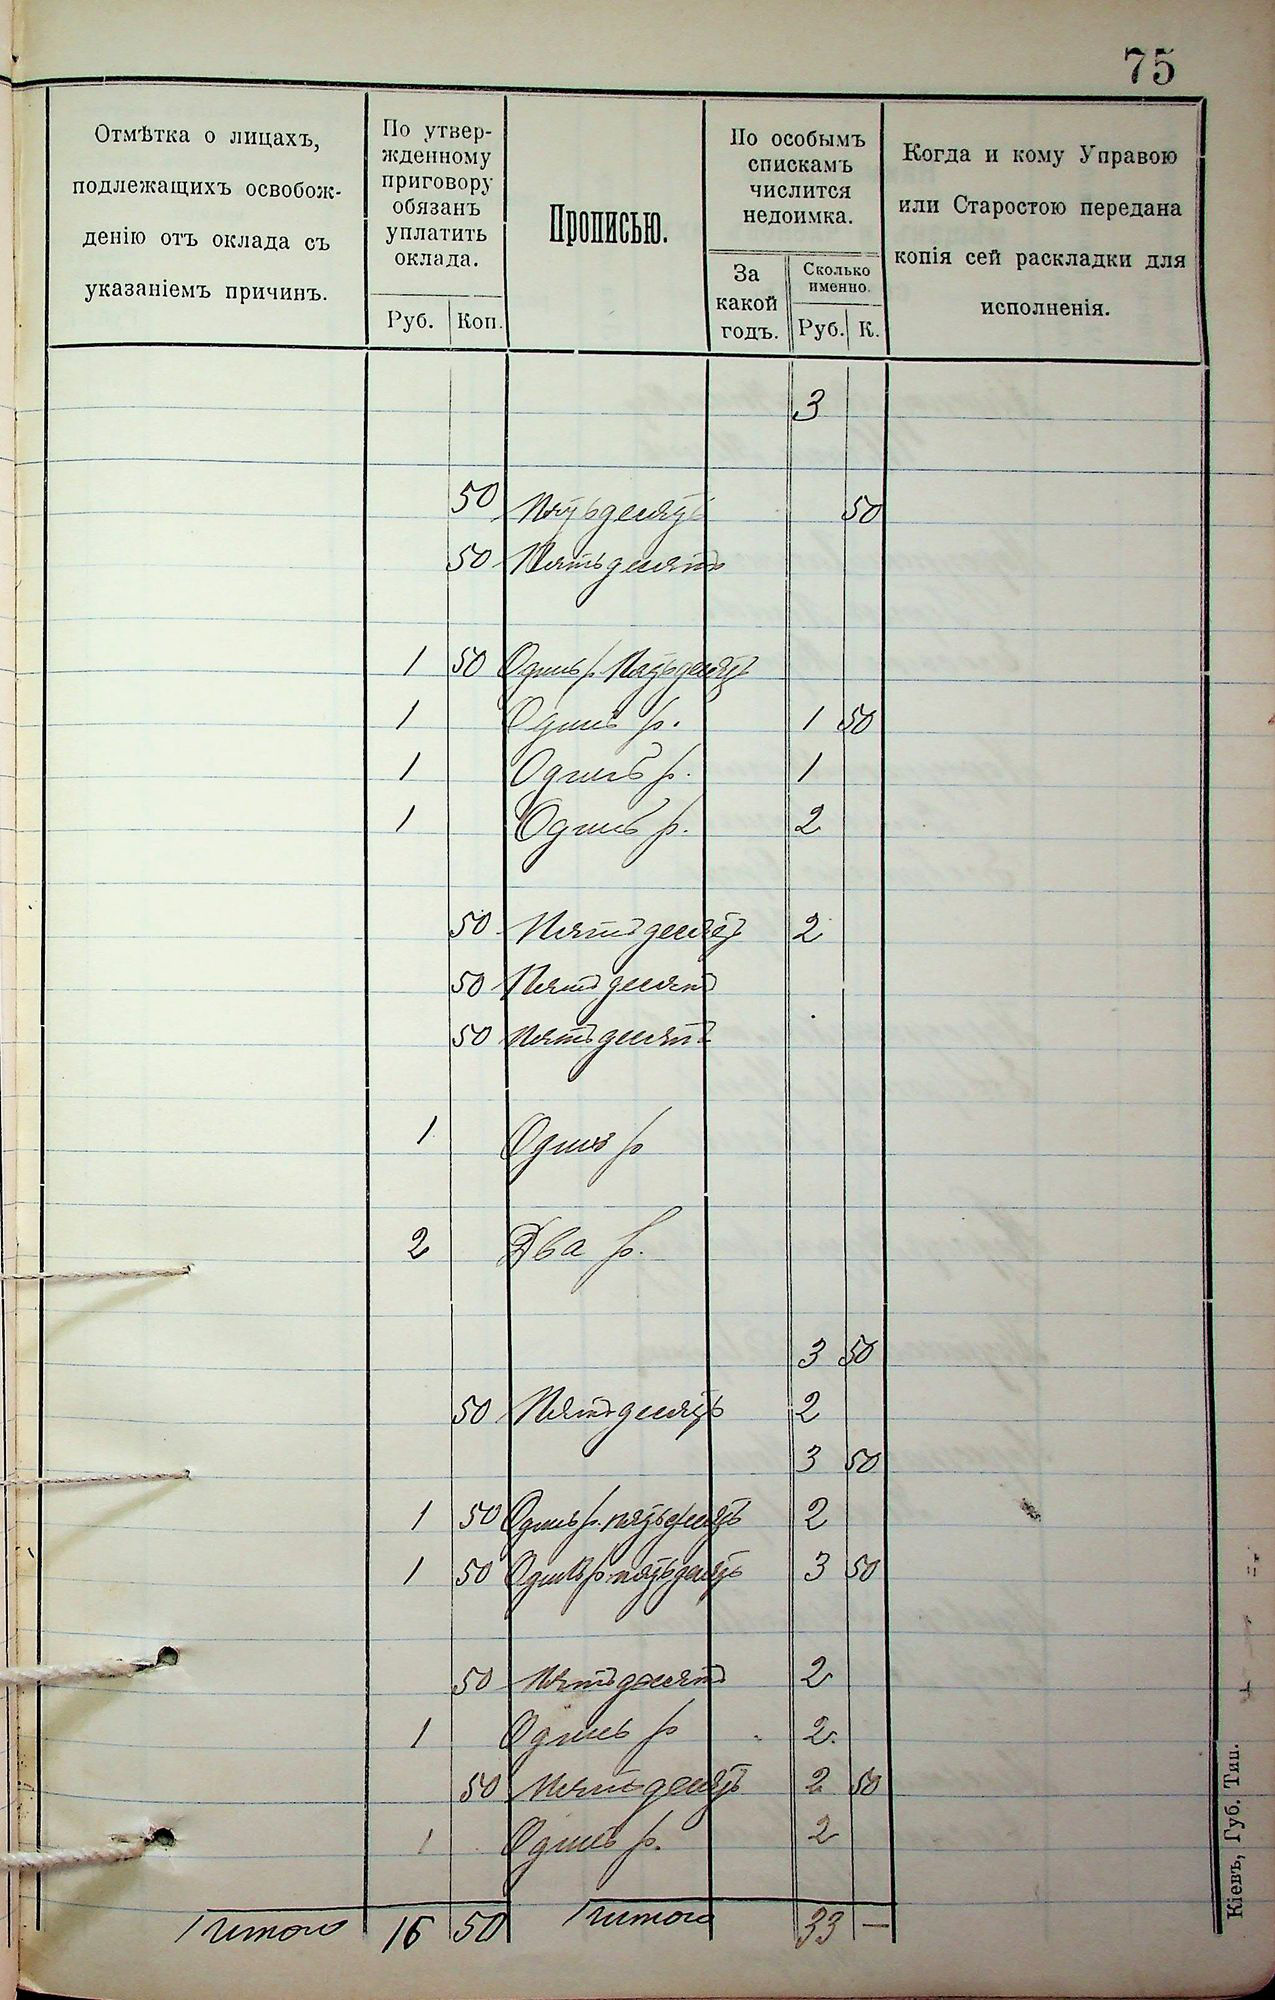 75
Отмѣтка о лицахъ,
подлежащихъ освобож-
денію отъ оклада съ
указаніемъ причинъ.
По утвер-
жденному
приговору
обязанъ
уплатить
оклада.
Руб. Коп.
Прописью.
По особымъ
спискамъ
числится
недоимка.
За
какой
годъ.
Сколько
именно.
Руб. К.
Когда и кому Управою
или Старостою передана
копія сей раскладки для
исполненія.
3
50 Пятьдесятъ 50
50 Пятьдесятъ
1 50 Одинъ р. Пятьдесятъ
1 Одинъ р. 1 50
1 Одинъ р. 1
1 Одинъ р. 2
50 Пятьдесятъ 2
50 Пятьдесятъ
50 Пятьдесятъ
1 Одинъ р
2 Два р.
3 50
50 Пятьдесятъ 2
3 50
1 50 Одинъ р. пятьдесятъ 2
1 50 Одинъ р. пятьдесятъ 3 50
50 Пятьдесятъ 2
1 Одинъ р 2.
50 Пятьдесятъ 2 50
1 Одинъ р. 2
Итого 16 50 Итого 33 —
Кіевъ, Губ. Тип.